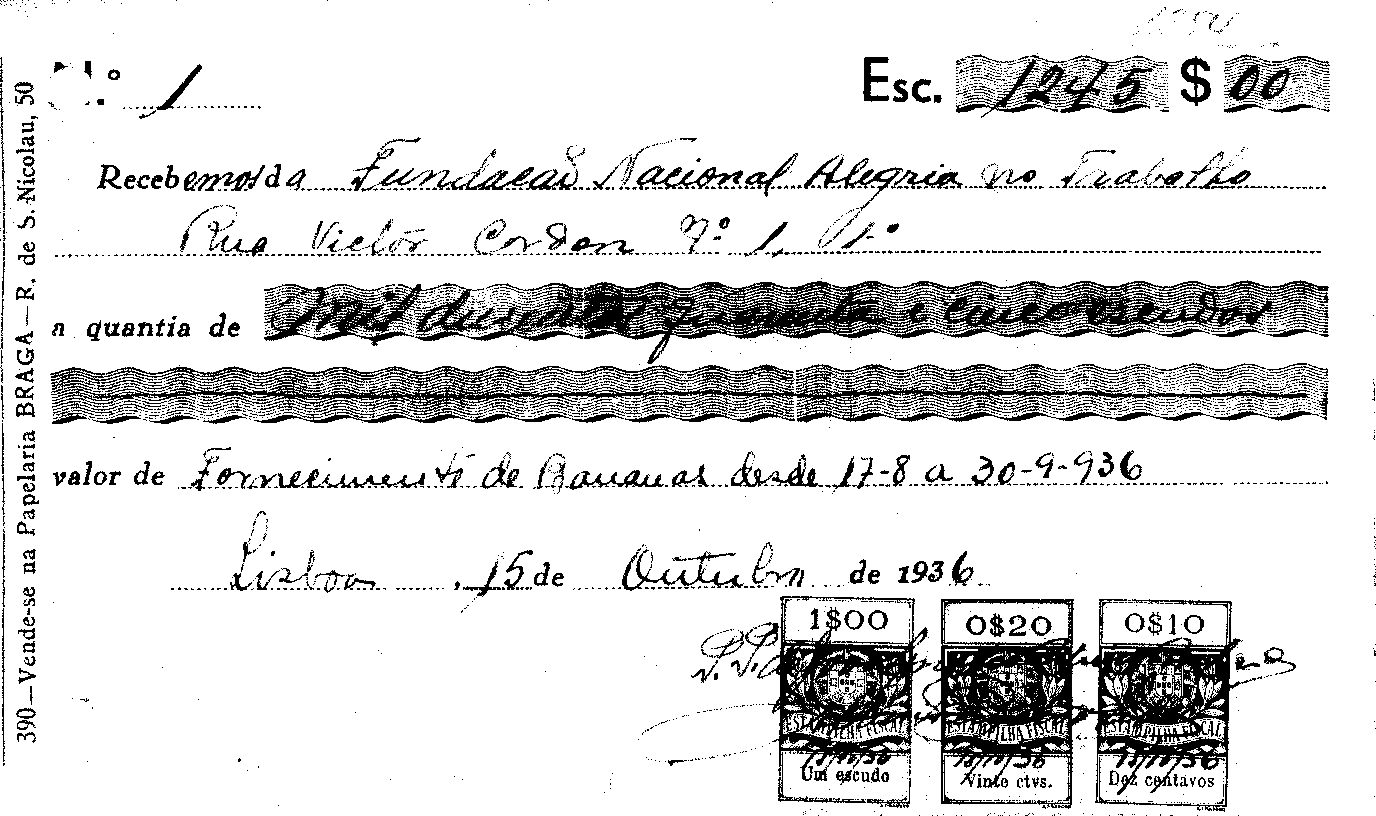 N.º 1
Esc. 1245 $ 00
Recebemos da Fundacão Nacional Alegria no Trabalho
Rua Victor Cordon Nº 1, 1º
a quantia de Mil duzentos quarenta e cinco escudos
valor de Fornecimento de Bananas desde 17-8 a 30-9-936
Lisboa, 15 de Outubro de 1936
1$00 0$20 0$10
P. P.
ESTAMPILHA FISCAL ESTAMPILHA FISCAL ESTAMPILHA FISCAL
15/10/36 15/10/36 15/10/36
Um escudo Vinte ctvs. Dez centavos
390—Vende-se na Papelaria BRAGA—R. de S. Nicolau, 50